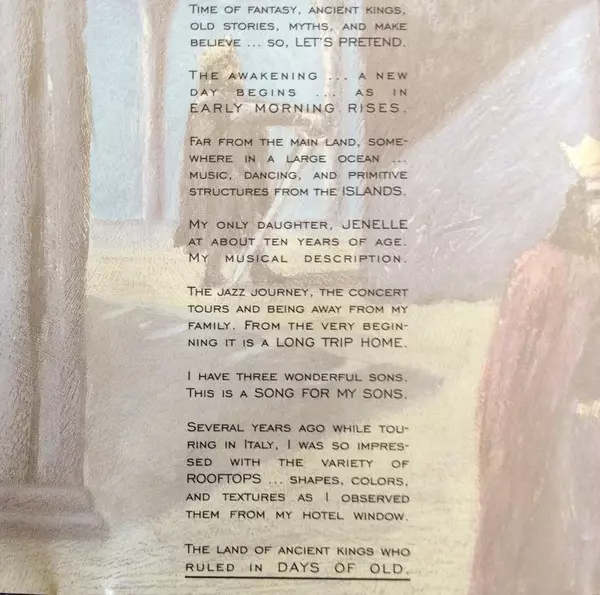 TIME OF FANTASY, ANCIENT KINGS,
OLD STORIES, MYTHS, AND MAKE
BELIEVE ... SO, LET'S PRETEND.
THE AWAKENING ... A NEW
DAY BEGINS ... AS IN
EARLY MORNING RISES.
FAR FROM THE MAIN LAND, SOME-
WHERE IN A LARGE OCEAN ...
MUSIC, DANCING, AND PRIMITIVE
STRUCTURES FROM THE ISLANDS.
MY ONLY DAUGHTER, JENELLE
AT ABOUT TEN YEARS OF AGE.
MY MUSICAL DESCRIPTION.
THE JAZZ JOURNEY, THE CONCERT
TOURS AND BEING AWAY FROM MY
FAMILY. FROM THE VERY BEGIN-
NING IT IS A LONG TRIP HOME.
I HAVE THREE WONDERFUL SONS.
THIS IS A SONG FOR MY SONS.
SEVERAL YEARS AGO WHILE TOU-
RING IN ITALY, I WAS SO IMPRES-
SED WITH THE VARIETY OF
ROOFTOPS ... SHAPES, COLORS,
AND TEXTURES AS I OBSERVED
THEM FROM MY HOTEL WINDOW.
THE LAND OF ANCIENT KINGS WHO
RULED IN DAYS OF OLD.